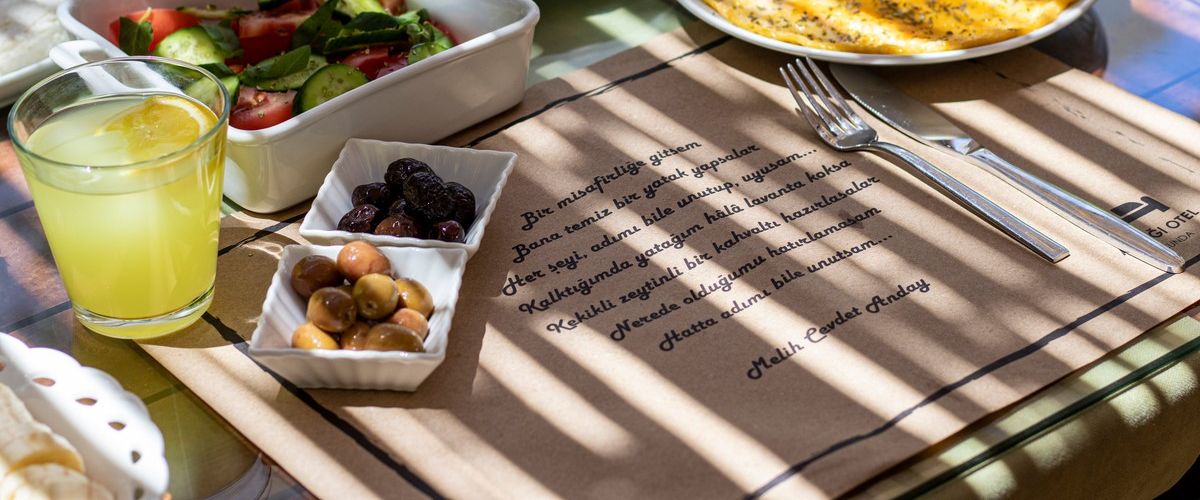 Bir misafirliğe gitsem
Bana temiz bir yatak yapsalar
Her şeyi, adımı bile unutup, uyusam...
Kalktığımda yatağım hâlâ lavanta koksa
Kekikli zeytinli bir kahvaltı hazırlasalar
Nerede olduğumu hatırlamasam
Hatta adımı bile unutsam...
Melih Cevdet Anday
OTEL